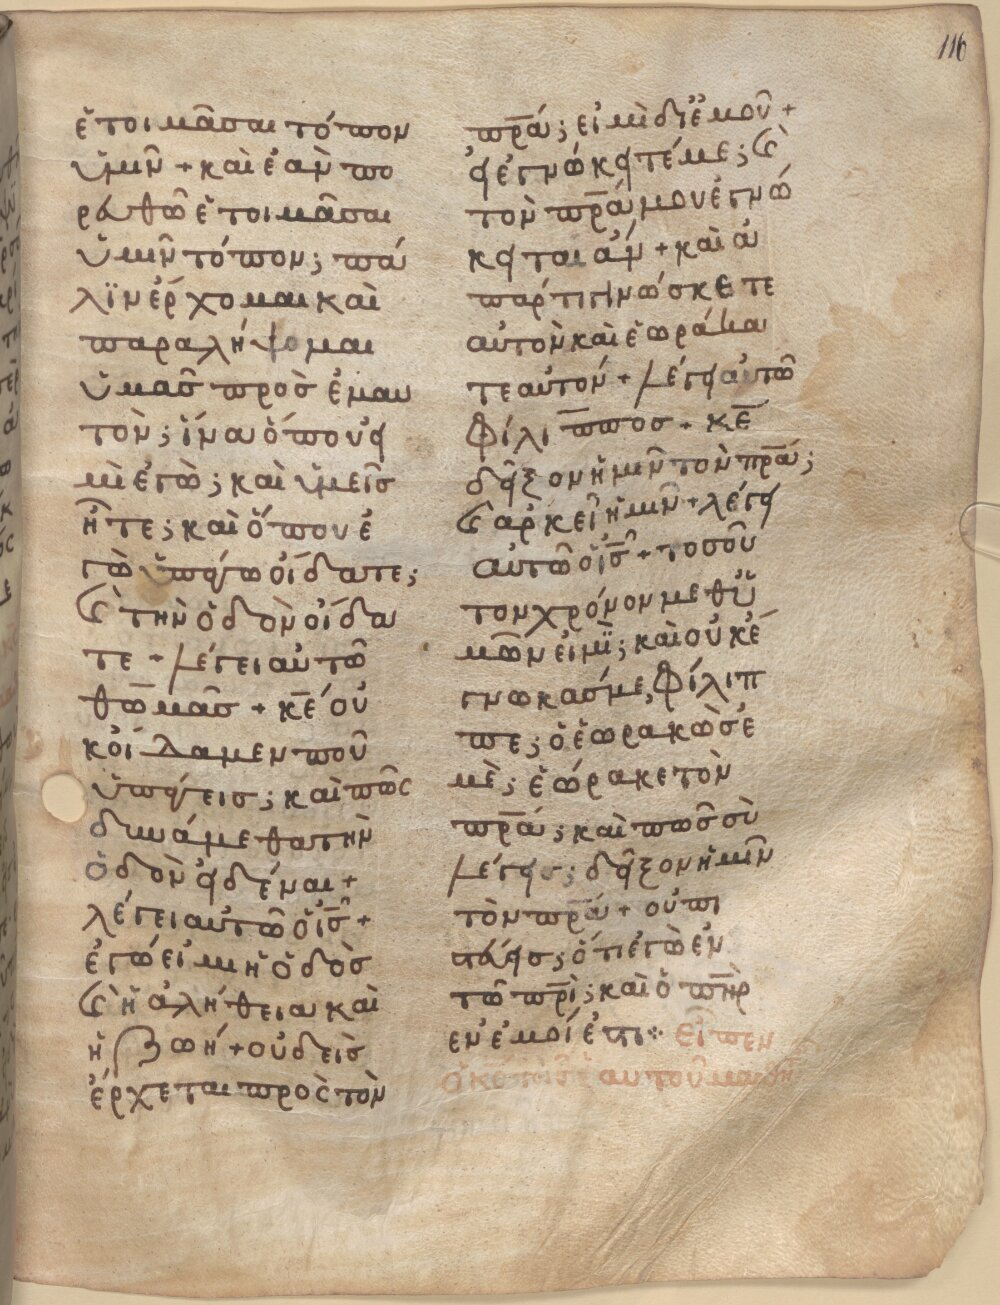 116
ἑτοιμᾶσαι τόπον
ὑμῖν + καὶ ἐὰν πο
ρευθῶ ἑτοιμᾶσαι
ὑμῖν τόπον; πά
λϊν ἔρχομαι καὶ
παραλήψομαι
ὑμᾶς πρὸς ἐμαυ
τὸν; ἵνα ὅπου εἰ
μὶ ἐγὼ; καὶ ὑμεῖς
ἦτε; καὶ ὅπου ἐ
γὼ ὑπάγω οἴδατε;
καὶ τὴν ὁδὸν οἴδα
τε + λέγει αὐτῶ
θωμᾶς + κ̅ε̅ οὐ
κ οἴδαμεν ποῦ
ὑπάγεις; καὶ πῶς
δυνάμεθα τὴν
ὁδὸν εἰδέναι +
λέγει αὐτῶ ὁ ι̅ς̅ +
ἐγώ εἰμι ἡ ὁδὸς
καὶ ἡ ἀλήθεια καὶ
ἡ ζωή + οὐδεὶς
ἔρχεται πρὸς τὸν
π̅ρ̅α̅; εἰ μὶ δι' ἐμοῦ +
εἰ ἐγνώκειτέ με; καὶ
τὸν π̅ρ̅α̅ μου ἐγνώ
κειται ἂν + καὶ ἀ
π' ἄρτι γινώσκετε
αὐτὸν καὶ ἑωράκα
τε αὐτόν + λέγει αὐτῶ
Φίλιππος + κ̅ε̅
δεῖξον ἡμῖν τὸν π̅ρ̅α̅;
καὶ ἀρκεῖ ἡμῖν + λέγει
αὐτῶ ὁ ι̅ς̅ + τοσοῦ
τον χρόνον μεθ' ὑ
μῶν εἰμϊ; καὶ οὐκ ἔ
γνωκάς με, Φίλιπ
πε; ὁ ἑωρακὼς ἐ
μὲ; ἑώρακε τὸν
π̅ρ̅α̅; καὶ πῶς σὺ
λέγεις; δεῖξον ἡμῖν
τὸν π̅ρ̅α̅ + οὐ πι
στεύεις; ὅτι ἐγὼ ἐν
τῶ π̅ρ̅ι̅; καὶ ὁ π̅η̅ρ̅
ἐν ἐμοί ἐστι⁘ Εἶπεν
ὁ κ̅ς̅ τοῖς ἑαυτοῦ μαθη